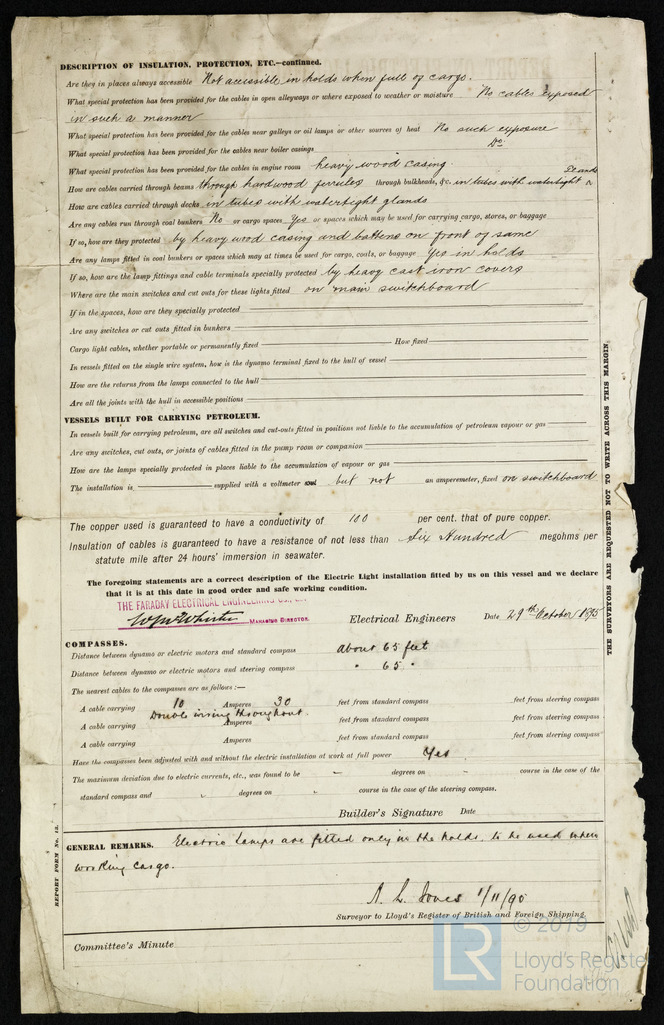 DESCRIPTION OF INSULATION, PROTECTION, ETC.—continued.
Are they in places always accessible Not accessible in holds when full of cargo.
What special protection has been provided for the cables in open alleyways or where exposed to weather or moisture No cables exposed
in such a manner
What special protection has been provided for the cables near galleys or oil lamps or other sources of heat No such exposure
What special protection has been provided for the cables near boiler casings Do.
What special protection has been provided for the cables in engine room heavy wood casing.
How are cables carried through beams through hardwood ferrules through bulkheads, &c. in tubes with watertight glands
How are cables carried through decks in tubes with watertight glands
Are any cables run through coal bunkers No or cargo spaces Yes or spaces which may be used for carrying cargo, stores, or baggage
If so, how are they protected by heavy wood casing and battens on front of same
Are any lamps fitted in coal bunkers or spaces which may at times be used for cargo, coals, or baggage Yes in holds
If so, how are the lamp fittings and cable terminals specially protected by heavy cast iron covers
Where are the main switches and cut outs for these lights fitted on main switchboard
If in the spaces, how are they specially protected
Are any switches or cut outs fitted in bunkers
Cargo light cables, whether portable or permanently fixed How fixed
In vessels fitted on the single wire system, how is the dynamo terminal fixed to the hull of vessel
How are the returns from the lamps connected to the hull
Are all the joints with the hull in accessible positions
VESSELS BUILT FOR CARRYING PETROLEUM.
In vessels built for carrying petroleum, are all switches and cut-outs fitted in positions not liable to the accumulation of petroleum vapour or gas
Are any switches, cut outs, or joints of cables fitted in the pump room or companion
How are the lamps specially protected in places liable to the accumulation of vapour or gas
The installation is supplied with a voltmeter and but not an amperemeter, fixed on switchboard
The copper used is guaranteed to have a conductivity of 100 per cent. that of pure copper.
Insulation of cables is guaranteed to have a resistance of not less than Six Hundred megohms per
statute mile after 24 hours' immersion in seawater.
The foregoing statements are a correct description of the Electric Light installation fitted by us on this vessel and we declare
that it is at this date in good order and safe working condition.
THE FARADAY ELECTRICAL ENGINEERING CO.,
MANAGING DIRECTOR. Electrical Engineers Date 29th October 1895
COMPASSES.
Distance between dynamo or electric motors and standard compass About 65 feet
Distance between dynamo or electric motors and steering compass " 65 "
The nearest cables to the compasses are as follows:—
A cable carrying 10 Amperes 30 feet from standard compass feet from steering compass
Double wiring throughout
A cable carrying Amperes feet from standard compass feet from steering compass
A cable carrying Amperes feet from standard compass feet from steering compass
Have the compasses been adjusted with and without the electric installation at work at full power Yes
The maximum deviation due to electric currents, etc., was found to be " degrees on " course in the case of the
standard compass and " degrees on " course in the case of the steering compass.
Builder's Signature Date
GENERAL REMARKS. Electric Lamps are fitted only in the holds, to be used when
working cargo.
A. L. Jones 1/11/95
Surveyor to Lloyd's Register of British and Foreign Shipping.
Committee's Minute
REPORT FORM No. 13.
THE SURVEYORS ARE REQUESTED NOT TO WRITE ACROSS THIS MARGIN.
LR
© 2019
Lloyd's Register
Foundation